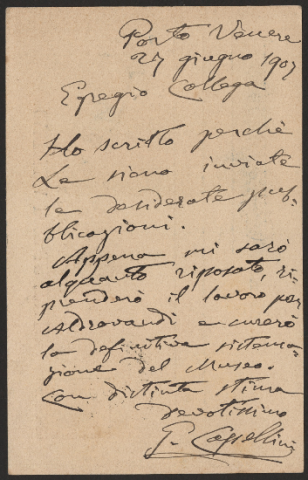 Porto Venere
27 giugno 1907
Egregio Collega
Ho scritto perchè
Le siano inviate
le desiderate pub-
blicazioni.
Appena mi sarò
alquanto riposato, ri-
prenderò il lavoro per
Aldrovandi e curerò
la definitiva sistema-
zione del Museo.
Con distinta stima
devotissimo
G. Capellini